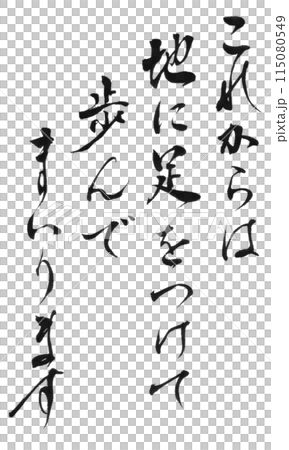 これからは
地に足をつけて
歩んで
まいります
PIXTA
115080549